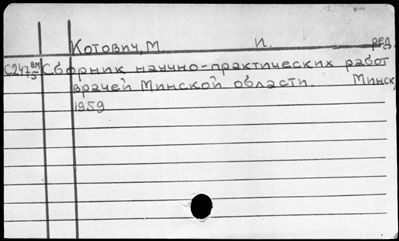 Котович, М. И. ред.
Сборник научно-практических работ
врачей Минской области. Минск,
1959